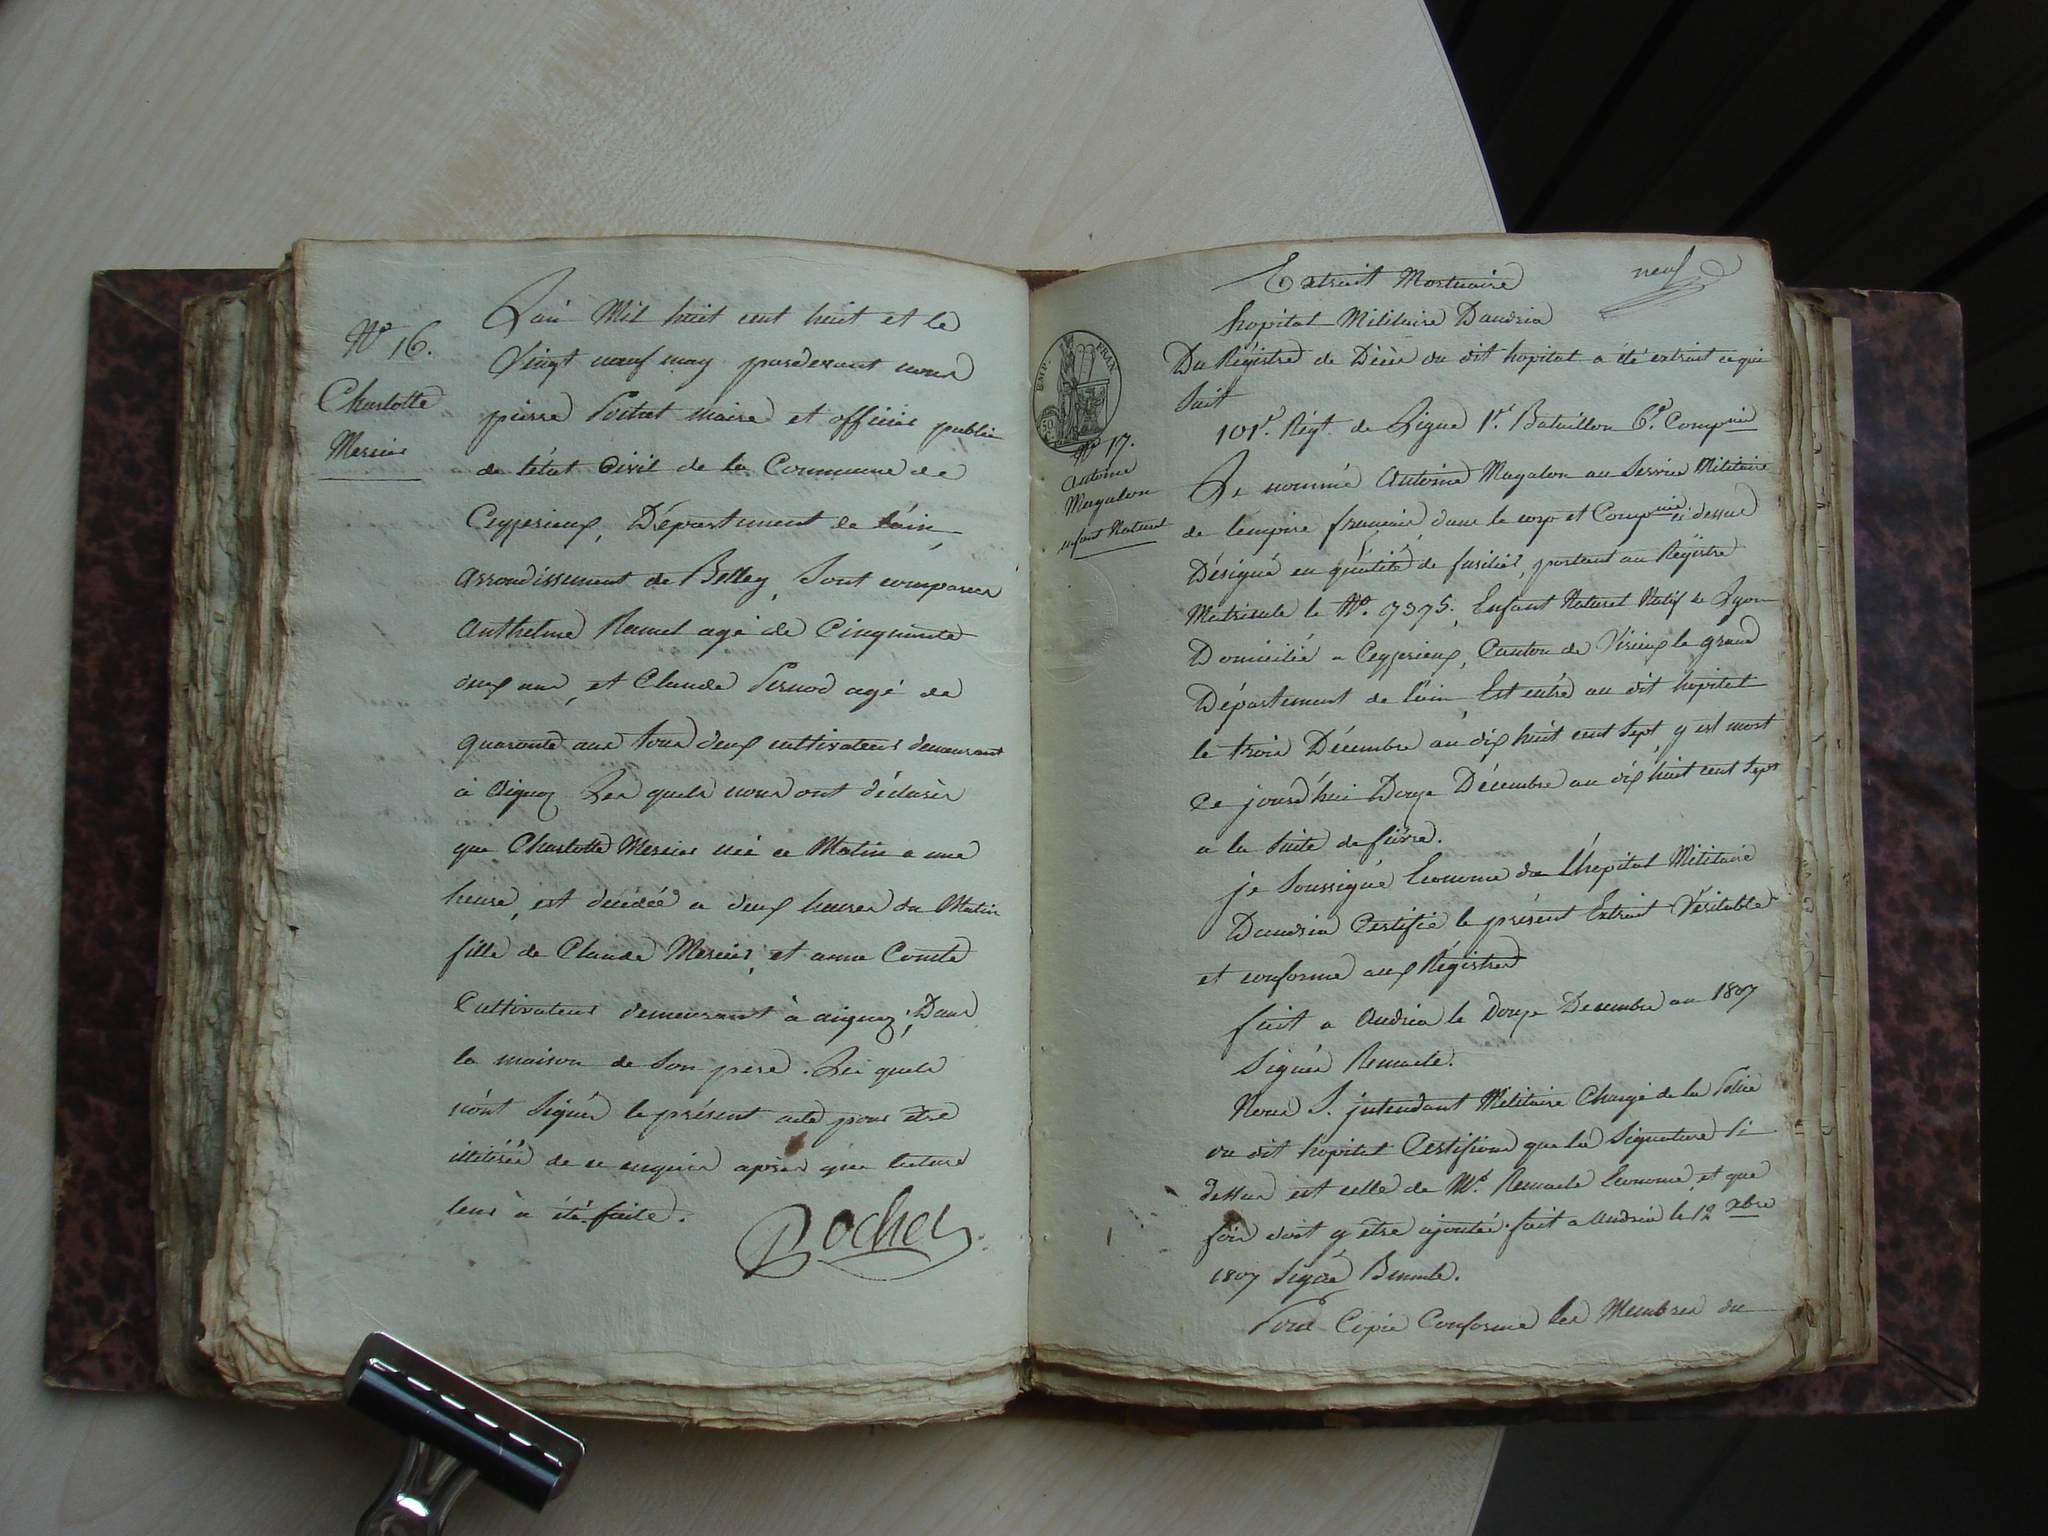 N° 16.
Charlotte
Mercier
L'an Mil huit cent huit et le
Vingt neuf may pardevant nous
pierre maire et officier public
de l'état Civil de la Commune de
Ceyzerieux, Département de l'ain,
arrondissement de Belley, Sont comparus
Anthelme Ramel agé de Cinquante
deux ans, et Claude Pernod agé de
quarante ans tous deux cultivateurs demeurant
à aignoz Les quels nous ont déclarés
que Charlotte Mercier née ce Matin a une
heure, est décédée a deux heures du Matin
fille de Claude Mercier, et anne Comte
Cultivateurs demeurant à aignoz, Dans
la maison de Son pere. Les quels
n'ont Signés le présent acte pour être
illitérés de ce enquis après que lecture
leur à été faite.
Rochet
neuf
Extrait Mortuaire
hopital Militaire Daudria
EMP. FRAN
50
Du Régistre de Décès du dit hopital a été extrait ce qui
Suit
101e. Régt. de Ligne 1er. Bataillon 6e. Compnie
N° 17.
antoine
Magalon
enfant Naturel
Le nommé Antoine Magalon au Service Militaire
de lempire français, dans le corp et Compnie ci dessus
Désigné en qualité de fusilier, portant au Régistre
Matricule le N°. 7375, Enfant Naturel Natif de Lyon
Domicilié a Ceyzerieux, Canton de Virieux le grand
Département de l'ain, Est entré au dit hopital
le trois Décembre an dix huit cent Sept, y est mort
Ce jourd'hui Douze Décembre an dix huit cent Sept
a la Suite de fièvre.
je Soussigné Econome du L'hopital Militaire
Daudria Certifie le présent Extrait Véritable
et conforme aux Régistres
fait a Audria le Douze Decembre an 1807
Signés Remacle.
Nous S. jntendant Militaire Chargé de la Police
du dit hopital Certifions que la Signature Si
dessus est celle de Mr. Remacle Econome, et que
foix doit y être ajoutée. fait a Audria le 12 xbre
1807 Signé
Pour Copie Conforme les Membres du